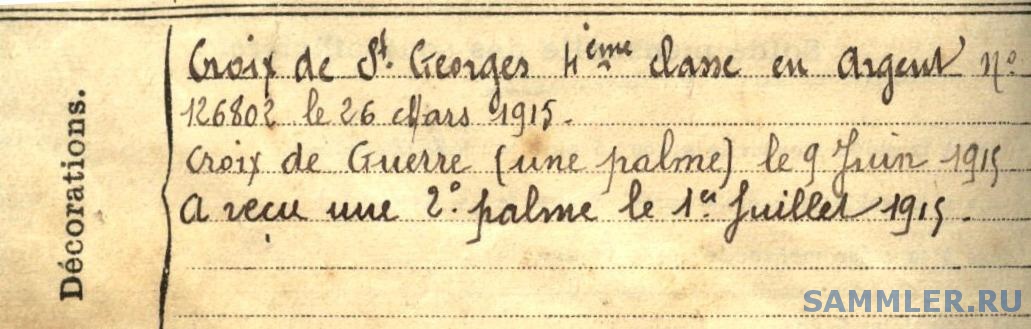 Décorations.
Croix de St. Georges 4ème classe en Argent n°
126802 le 26 Mars 1915.
Croix de Guerre (une palme) le 9 Juin 1915
A reçu une 2° palme le 1er Juillet 1915.
SAMMLER.RU